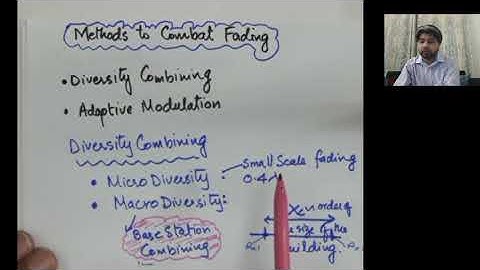 Methods to Combat Fading
• Diversity Combining
• Adaptive Modulation
Diversity Combining
• Micro Diversity : Small Scale fading
0.4
• Macro Diversity :
Base Station
Combining
order of
size of the
building.